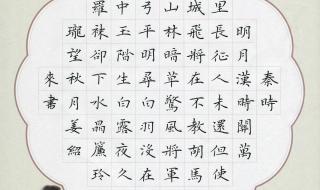 秦時
明月漢時關萬
里長征人未還但使
城飛將在不教胡馬
山林暗草驚風將軍
弓平明尋白羽沒在
中玉階生白露夜久
羅袜卻下水晶簾玲
瓏望秋月姜紹
來書